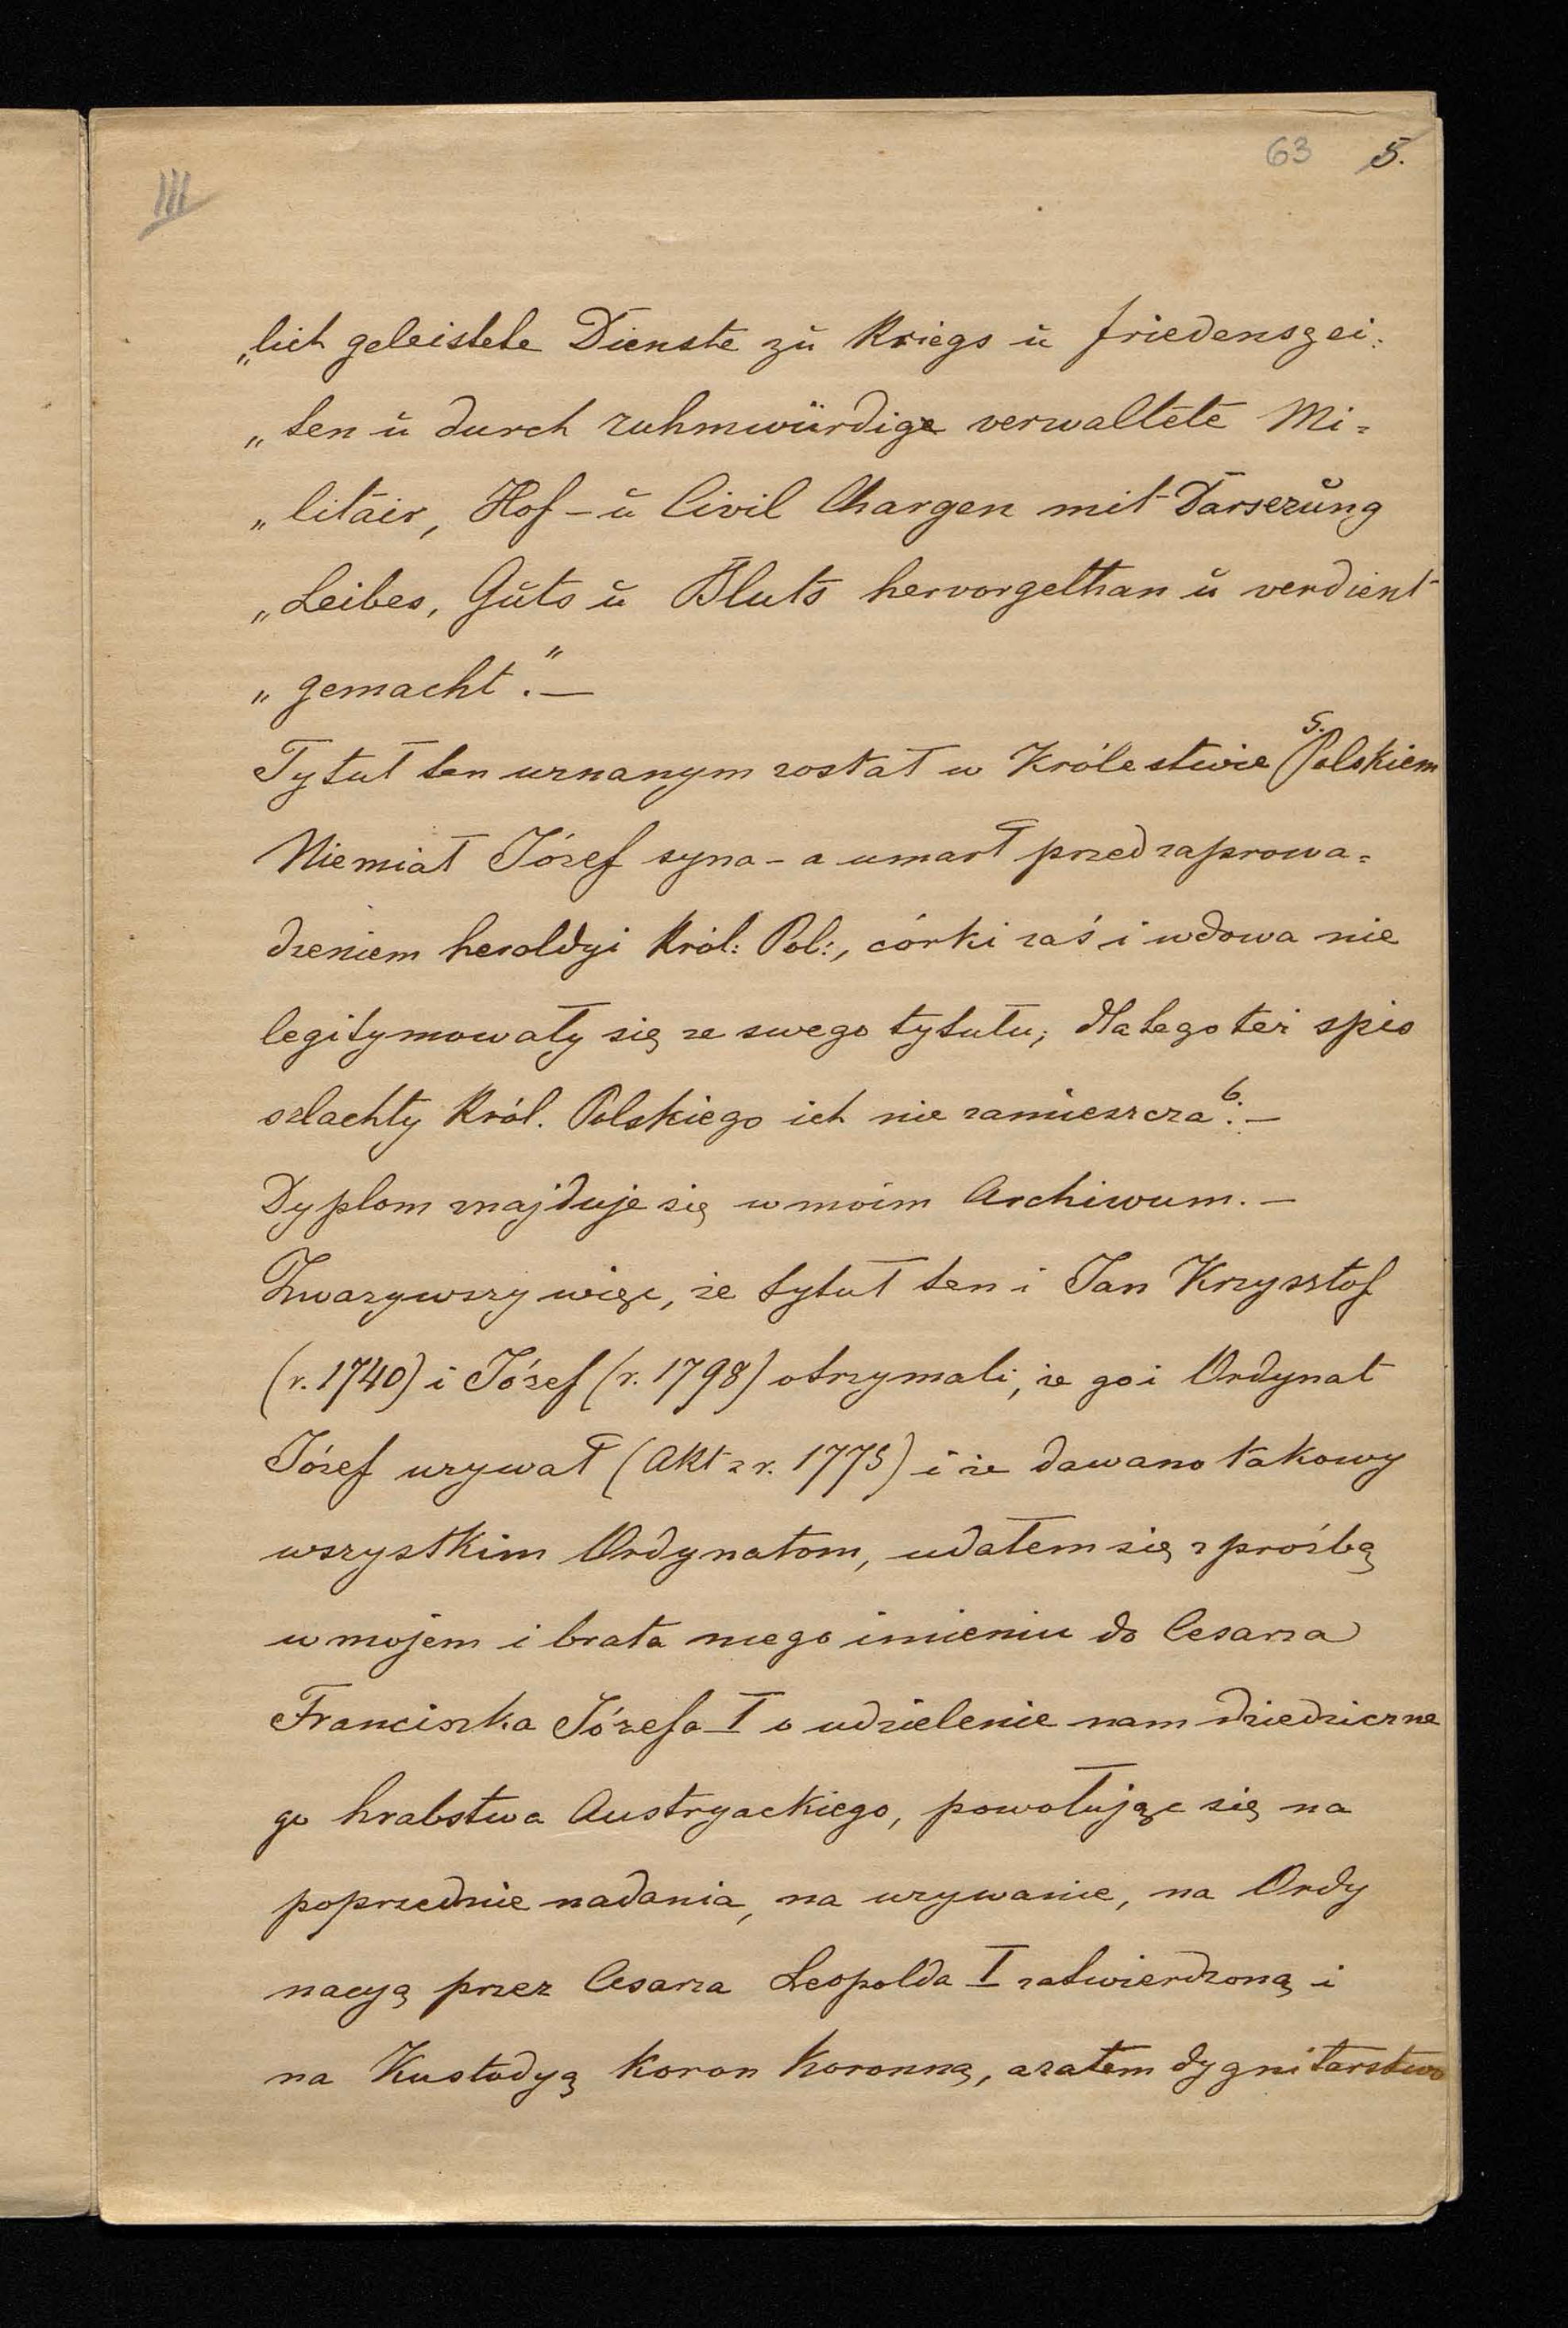 63 5.
III
„lich geleistete Dienste zŭ Kriegs ŭ friedenszei:
„ten ŭ durch ruhmwürdige verwaltete Mi=
„litair, Hof-ŭ Civil Chargen mit Darserŭng
„Leibes, Gŭts ŭ Bluts hervorgethan ŭ verdient
„gemacht".—
Tytuł ten uznanym został w Królestwie 5. Polskiem
Niemiał Józef syna - a umarł przed zaprowa=
dzeniem heroldyi Król: Pol:, córki zaś i wdowa nie
legitymowały się ze swego tytułu; dla tego też spis
szlachty Król. Polskiego ich nie zamieszcza 6.—
Dyplom znajduje się w moim Archiwum.—
Zważywszy więc, że tytuł ten i Jan Krzysztof
(r. 1740) i Józef (r. 1798) otrzymali, że go i Ordynat
Józef używał (Akt z r. 1775) i że dawano takowy
wszystkim Ordynatom, udałem się z prośbą
w mojem i brata mego imieniu do Cesarza
Franciszka Józefa I o udzielenie nam dziedziczne
go hrabstwa Austryackiego, powołując się na
poprzednie nadania, na używanie, na Ordy
nacyą przez Cesarza Leopolda I zatwierdzoną i
na Kustodyą Koron Koronną, a zatem dygnitarstwo